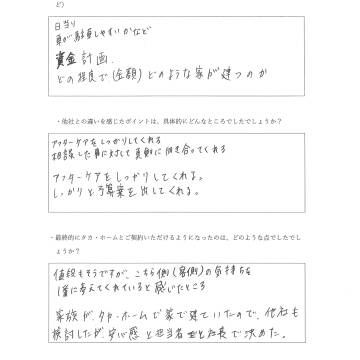 ど）
日当り
車が駐車しやすいかなど
資金計画.
どの程度で(金額)どのような家が建つのか
・他社との違いを感じたポイントは、具体的にどんなところでしたでしょうか？
アフターケアをしっかりしてくれる
相談した事に対して真剣に向き合ってくれる
アフターケアをしっかりしてくれる。
しっかりと予算案を出してくれる。
・最終的にタカ・ホームとご契約いただけるようになったのは、どのような点でしたでしょうか？
値段もそうですが、こちら側(客側)の気持ちを
1番に考えてくれていると感じたところ
家族が、タカ・ホームで家を建てていたので、他社も
検討したが、安心感と担当者と社長で決めた。